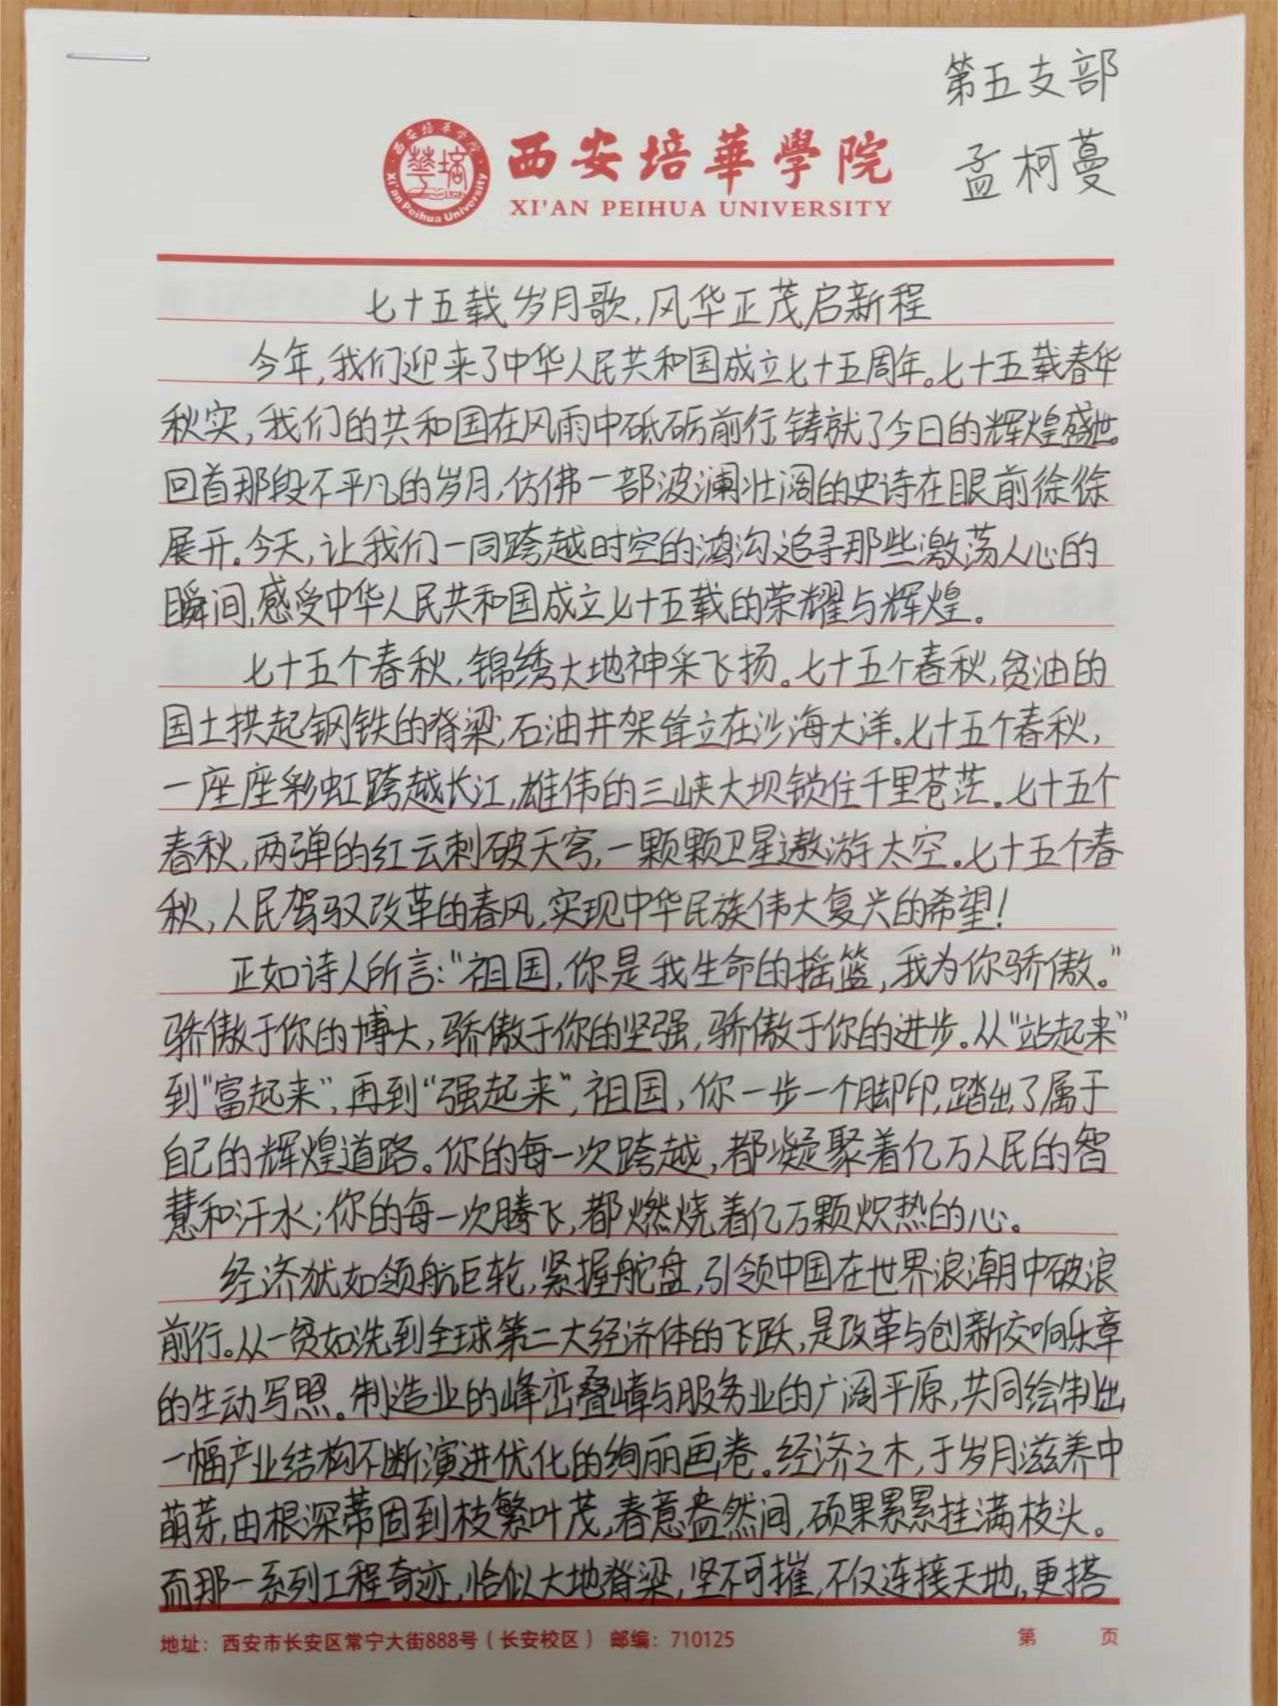 第五支部
孟柯蔓
西安培華學院
XI'AN PEIHUA UNIVERSITY
西安培华学院
華培
Xi'an Peihua University
七十五载岁月歌,风华正茂启新程
今年,我们迎来了中华人民共和国成立七十五周年。七十五载春华
秋实,我们的共和国在风雨中砥砺前行,铸就了今日的辉煌盛世。
回首那段不平凡的岁月,仿佛一部波澜壮阔的史诗在眼前徐徐
展开。今天,让我们一同跨越时空的鸿沟,追寻那些激荡人心的
瞬间,感受中华人民共和国成立七十五载的荣耀与辉煌。
七十五个春秋,锦绣大地神采飞扬。七十五个春秋,贫油的
国土拱起钢铁的脊梁,石油井架耸立在沙海大洋。七十五个春秋,
一座座彩虹跨越长江,雄伟的三峡大坝锁住千里苍茫。七十五个
春秋,两弹的红云刺破天穹,一颗颗卫星遨游太空。七十五个春
秋,人民驾驭改革的春风,实现中华民族伟大复兴的希望!
正如诗人所言:“祖国,你是我生命的摇篮,我为你骄傲。”
骄傲于你的博大,骄傲于你的坚强,骄傲于你的进步。从“站起来”
到“富起来”,再到“强起来”,祖国,你一步一个脚印,踏出了属于
自己的辉煌道路。你的每一次跨越,都凝聚着亿万人民的智
慧和汗水;你的每一次腾飞,都燃烧着亿万颗炽热的心。
经济犹如领航巨轮,紧握舵盘,引领中国在世界浪潮中破浪
前行。从一贫如洗到全球第二大经济体的飞跃,是改革与创新交响乐章
的生动写照。制造业的峰峦叠嶂与服务业的广阔平原,共同绘制出
一幅产业结构不断演进优化的绚丽画卷。经济之木,于岁月滋养中
萌芽,由根深蒂固到枝繁叶茂,春意盎然间,硕果累累挂满枝头。
而那一系列工程奇迹,恰似大地脊梁,坚不可摧,不仅连接天地,更搭
地址:西安市长安区常宁大街888号(长安校区) 邮编:710125
第 页